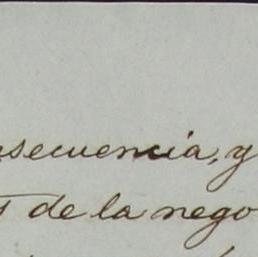 nsecuencia, y
de la nego